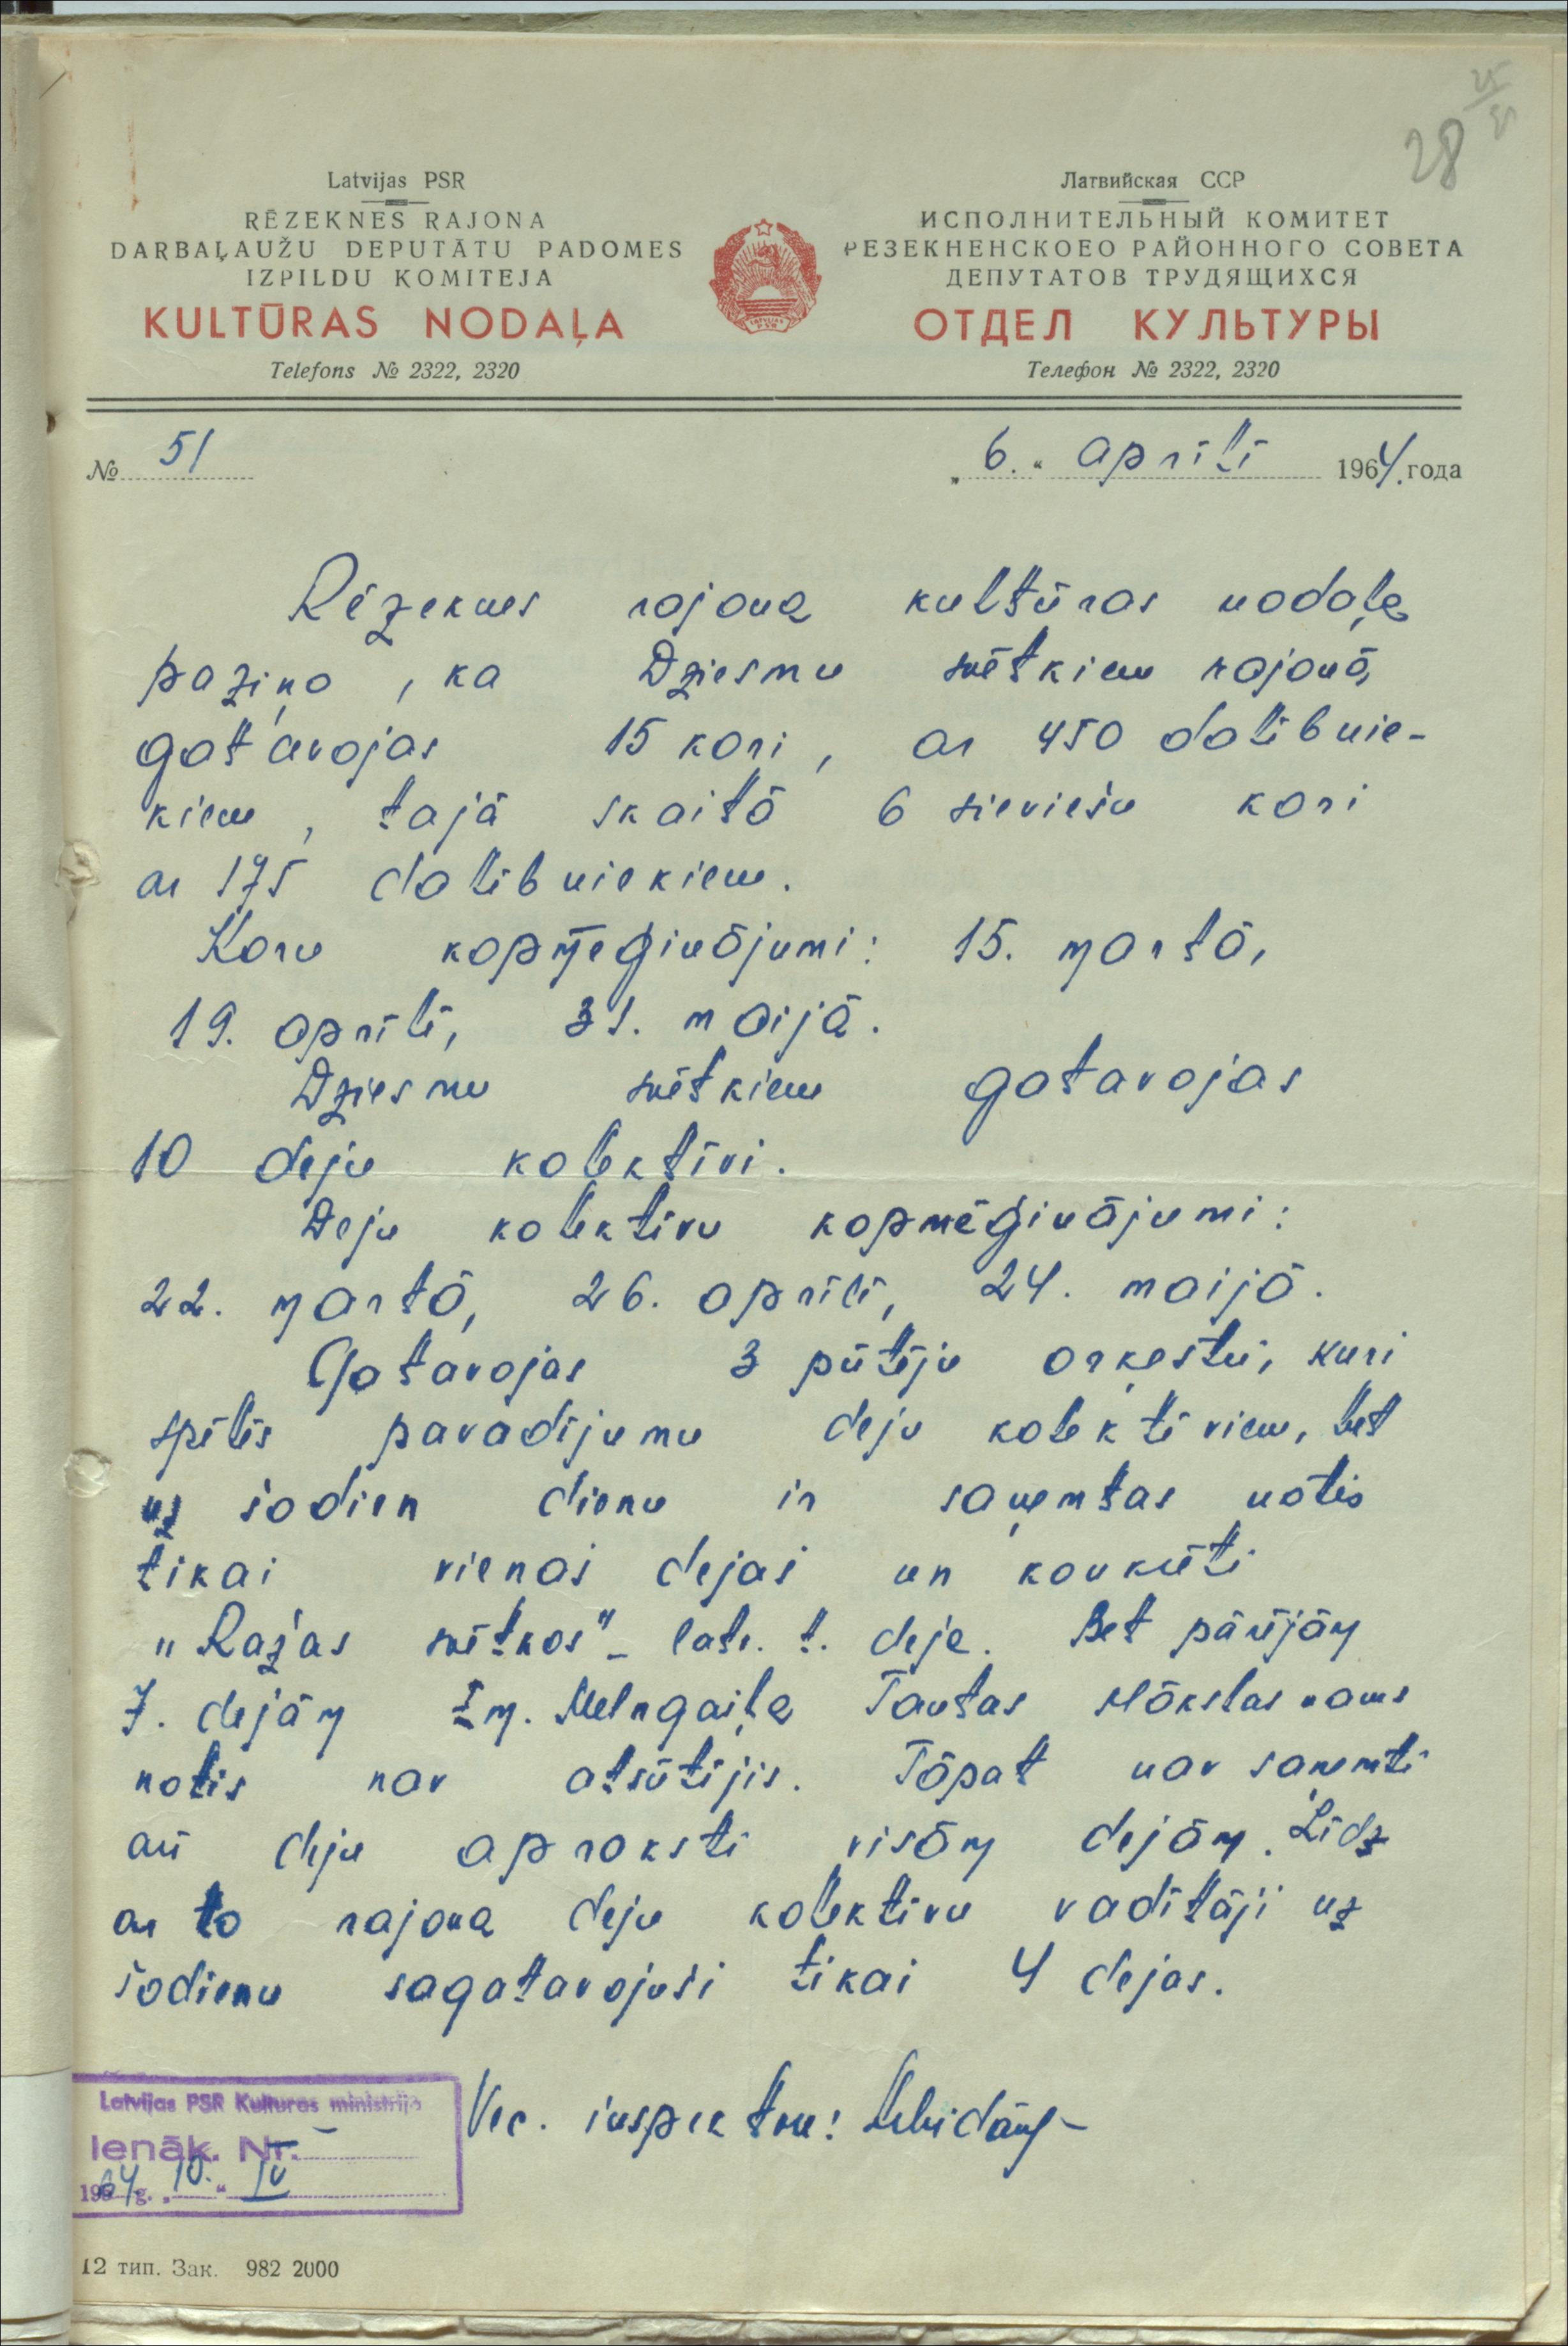 28
Latvijas PSR
RĒZEKNES RAJONA
DARBAĻAUŽU DEPUTĀTU PADOMES
IZPILDU KOMITEJA
KULTŪRAS NODAĻA
Telefons № 2322, 2320
Латвийская ССР
ИСПОЛНИТЕЛЬНЫЙ КОМИТЕТ
РЕЗЕКНЕНСКОЕО РАЙОННОГО СОВЕТА
ДЕПУТАТОВ ТРУДЯЩИХСЯ
ОТДЕЛ КУЛЬТУРЫ
Телефон № 2322, 2320
№ 51
„6.“ aprīlī 1964. года
Rēzeknes rajona kultūras nodaļa
paziņo, ka Dziesmu svētkiem rajonā
gatavojas 15 kori, ar 450 dalībnie-
kiem, tajā skaitā 6 sieviešu kori
ar 175 dalībniekiem.
Koru kopmēģinājumi: 15. martā,
19. aprīlī, 31. maijā.
Dziesmu svētkiem gatavojas
10 deju kolektīvi.
Deju kolektīvu kopmēģinājumi:
22. martā, 26. aprīlī, 24. maijā.
Gatavojas 3 pūtēju orķestŗi, kuri
spēlēs pavadījumu deju kolektīviem, bet
uz šodien dienu ir saņemtas notis
tikai vienai dejai un konkrēti
„Ražas svētkos" – latv. t. deja. Bet pārējām
7. dejām Em. Melngaiļa Tautas mākslas nams
notis nav atsūtījis. Tāpat nav saņemti
arī deju apraksti visām dejām. Līdz
ar to rajona deju kolektīvu vadītāji uz
šodienu sagatavojuši tikai 4 dejas.
Vec. inspektore:
Latvijas PSR Kulturas ministrija
Ienāk. Nr. –
1964 g. „10.“ IV
12 тип. Зак. 982 2000